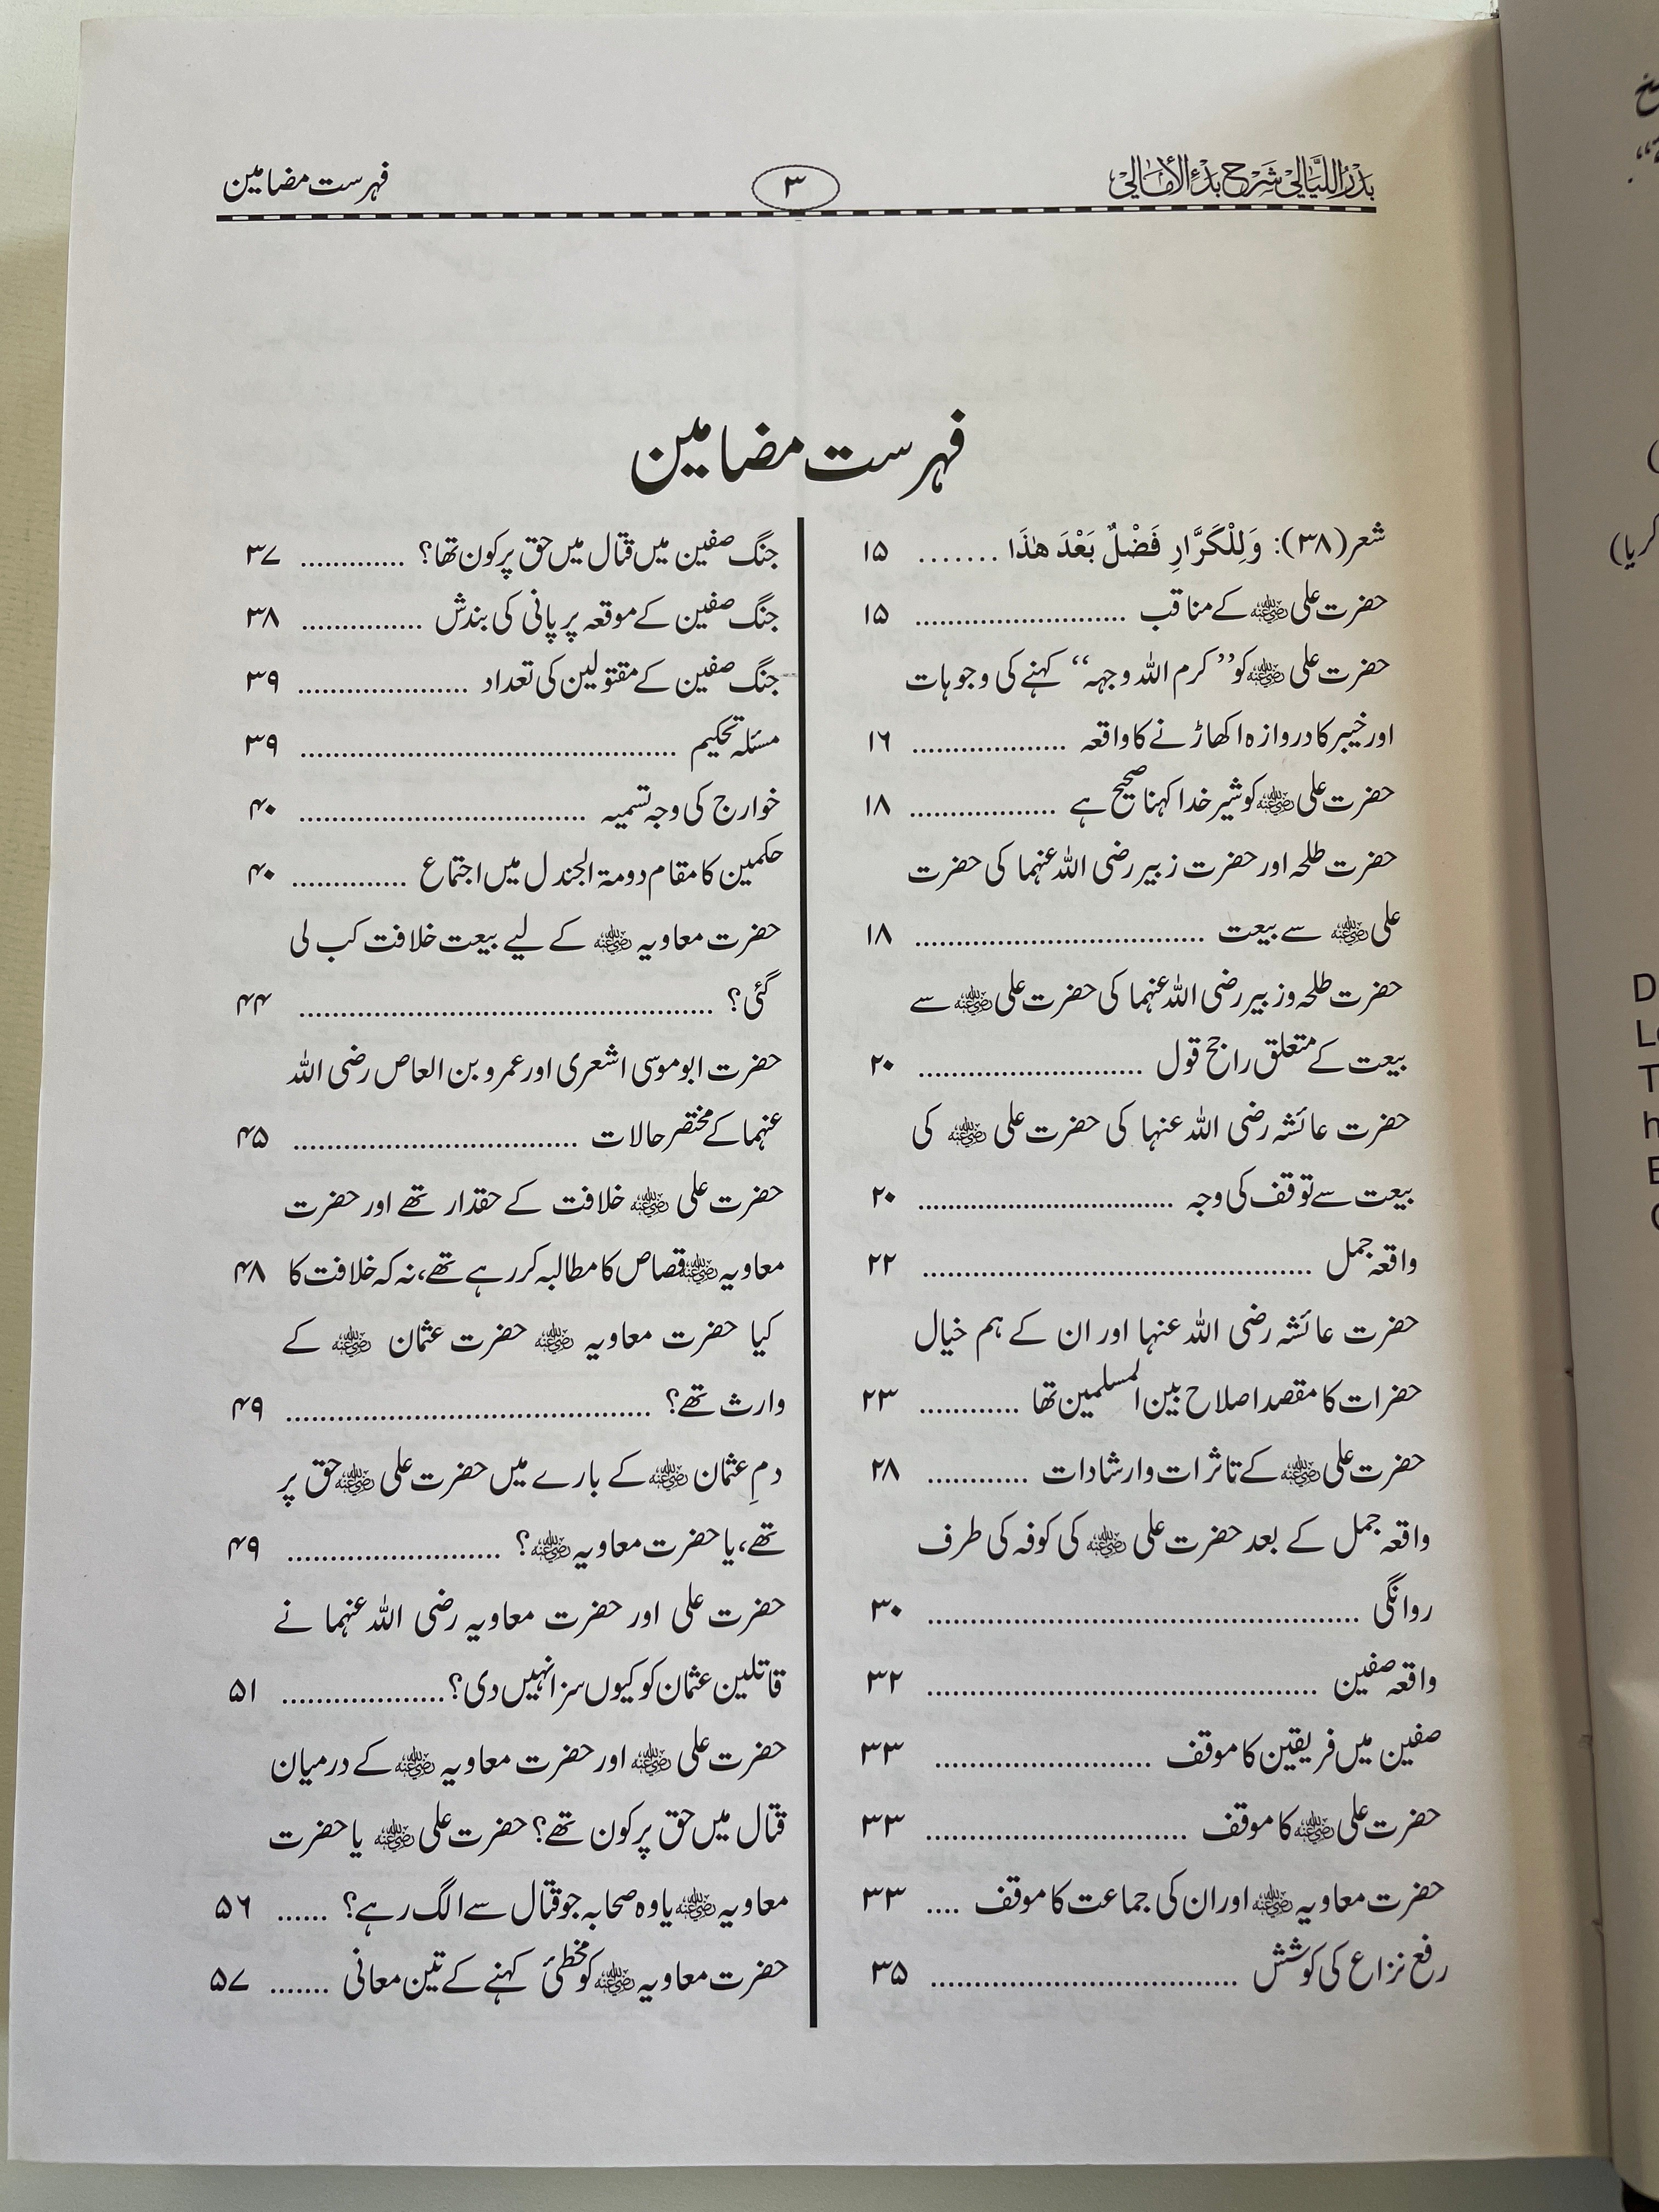 بَدْرُ اللَّیَالِيْ شَرْح بَدْءِ الْأَمَالِيْ
۳
فہرست مضامین
فہرست مضامین
شعر(۳۸): وَلِلْكَرَّارِ فَضْلٌ بَعْدَ هٰذَا ....... ۱۵
حضرت علی رضی اللہ عنہ کے مناقب ....... ۱۵
حضرت علی رضی اللہ عنہ کو ’’کرم اللہ وجہہ‘‘ کہنے کی وجوہات
اور خیبر کا دروازہ اکھاڑنے کا واقعہ ....... ۱۶
حضرت علی رضی اللہ عنہ کو شیر خدا کہنا صحیح ہے ....... ۱۸
حضرت طلحہ اور حضرت زبیر رضی اللہ عنہما کی حضرت
علی رضی اللہ عنہ سے بیعت ....... ۱۸
حضرت طلحہ وزبیر رضی اللہ عنہما کی حضرت علی رضی اللہ عنہ سے
بیعت کے متعلق راجح قول ....... ۲۰
حضرت عائشہ رضی اللہ عنہا کی حضرت علی رضی اللہ عنہ کی
بیعت سے توقف کی وجہ ....... ۲۰
واقعہ جمل ....... ۲۲
حضرت عائشہ رضی اللہ عنہا اور ان کے ہم خیال
حضرات کا مقصد اصلاح بین المسلمین تھا ....... ۲۳
حضرت علی رضی اللہ عنہ کے تاثرات وارشادات ....... ۲۸
واقعہ جمل کے بعد حضرت علی رضی اللہ عنہ کی کوفہ کی طرف
روانگی ....... ۳۰
واقعہ صفین ....... ۳۲
صفین میں فریقین کا موقف ....... ۳۳
حضرت علی رضی اللہ عنہ کا موقف ....... ۳۳
حضرت معاویہ رضی اللہ عنہ اور ان کی جماعت کا موقف .... ۳۳
رفع نزاع کی کوشش ....... ۳۵
جنگ صفین میں قتال میں حق پر کون تھا؟ ....... ۳۷
جنگ صفین کے موقعہ پر پانی کی بندش ....... ۳۸
جنگ صفین کے مقتولین کی تعداد ....... ۳۹
مسئلہ تحکیم ....... ۳۹
خوارج کی وجہ تسمیہ ....... ۴۰
حکمین کا مقام دومۃ الجندل میں اجتماع ....... ۴۰
حضرت معاویہ رضی اللہ عنہ کے لیے بیعت خلافت کب لی
گئی؟ ....... ۴۴
حضرت ابو موسی اشعری اور عمرو بن العاص رضی اللہ
عنہما کے مختصر حالات ....... ۴۵
حضرت علی رضی اللہ عنہ خلافت کے حقدار تھے اور حضرت
معاویہ رضی اللہ عنہ قصاص کا مطالبہ کر رہے تھے، نہ کہ خلافت کا ۴۸
کیا حضرت معاویہ رضی اللہ عنہ حضرت عثمان رضی اللہ عنہ کے
وارث تھے؟ ....... ۴۹
دمِ عثمان رضی اللہ عنہ کے بارے میں حضرت علی رضی اللہ عنہ حق پر
تھے، یا حضرت معاویہ رضی اللہ عنہ؟ ....... ۴۹
حضرت علی اور حضرت معاویہ رضی اللہ عنہما نے
قاتلین عثمان کو کیوں سزا نہیں دی؟ ....... ۵۱
حضرت علی رضی اللہ عنہ اور حضرت معاویہ رضی اللہ عنہ کے درمیان
قتال میں حق پر کون تھے؟ حضرت علی رضی اللہ عنہ یا حضرت
معاویہ رضی اللہ عنہ یا وہ صحابہ جو قتال سے الگ رہے؟ ...... ۵۶
حضرت معاویہ رضی اللہ عنہ کو مخطئ کہنے کے تین معانی ....... ۵۷